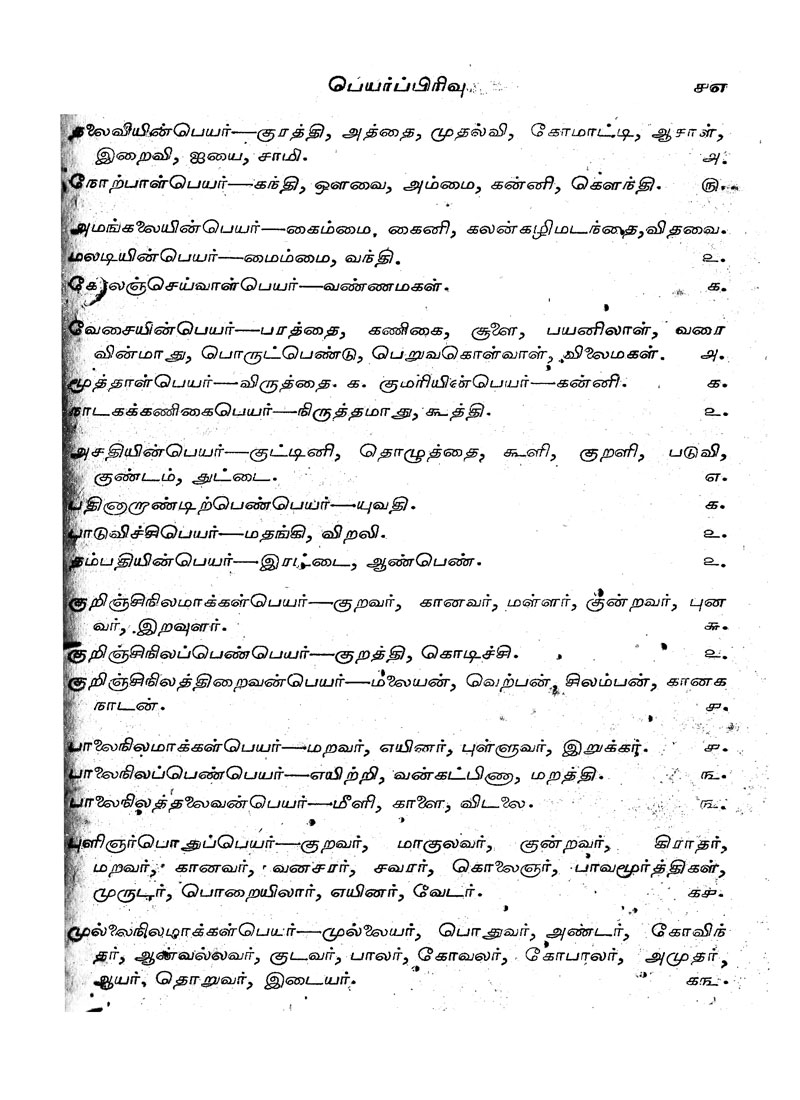 பெயர்ப்பிரிவு ௪௭
தலைவியின்பெயர்—குரத்தி, அத்தை, முதல்வி, கோமாட்டி, ஆசாள்,
இறைவி, ஐயை, சாமி. ௮.
நோற்பாள்பெயர்—கந்தி, ஔவை, அம்மை, கன்னி, கௌந்தி. ௫.
அமங்கலையின்பெயர்—கைம்மை, கைனி, கலன்கழிமடந்தை, விதவை.
மலடியின்பெயர்—மைம்மை, வந்தி. ௨.
கோலஞ்செய்வாள்பெயர்—வண்ணமகள். ௧.
வேசையின்பெயர்—பரத்தை, கணிகை, சூளை, பயனிலாள், வரை
வின்மாது, பொருட்பெண்டு, பெறுவகொள்வாள், விலைமகள். ௮.
மூத்தாள்பெயர்—விருத்தை. ௧. குமரியின்பெயர்—கன்னி. ௧.
நாடகக்கணிகைபெயர்—நிருத்தமாது, கூத்தி. ௨.
அசதியின்பெயர்—குட்டினி, தொழுத்தை, கூளி, குறளி, படுவி,
குண்டம், அட்டை. ௭.
பதினாறாண்டிற்பெண்பெயர்—யுவதி. ௧.
பாடுவிச்சிபெயர்—மதங்கி, விறலி. ௨.
தம்பதியின்பெயர்—இரட்டை, ஆண்பெண். ௨.
குறிஞ்சிநிலமாக்கள்பெயர்—குறவர், கானவர், மள்ளர், குன்றவர், புன
வர், இறவுளர். ௬.
குறிஞ்சிநிலப்பெண்பெயர்—குறத்தி, கொடிச்சி. ௨.
குறிஞ்சிநிலத்திறைவன்பெயர்—மலையன், வெற்பன், சிலம்பன், கானக
நாடன். ௪.
பாலைநிலமாக்கள்பெயர்—மறவர், எயினர், புள்ளுவர், இறுக்கர். ௪.
பாலைநிலப்பெண்பெயர்—எயிற்றி, வன்கட்பிணா, மறத்தி. ௩.
பாலைநிலத்தலைவன்பெயர்—மீளி, காளை, விடலை. ௩.
புளிஞர்பொதுப்பெயர்—குறவர், மாகுலவர், குன்றவர், கிராதர்,
மறவர், கானவர், வனசரர், சவரர், கொலைஞர், பாவமூர்த்திகள்,
முருடர், பொறையிலார், எயினர், வேடர். ௧௪.
முல்லைநிலமாக்கள்பெயர்—முல்லையர், பொதுவர், அண்டர், கோவிந்
தர், ஆன்வல்லவர், குடவர், பாலர், கோவலர், கோபாலர், அமுதர்,
ஆயர், தொறுவர், இடையர். ௧௩.